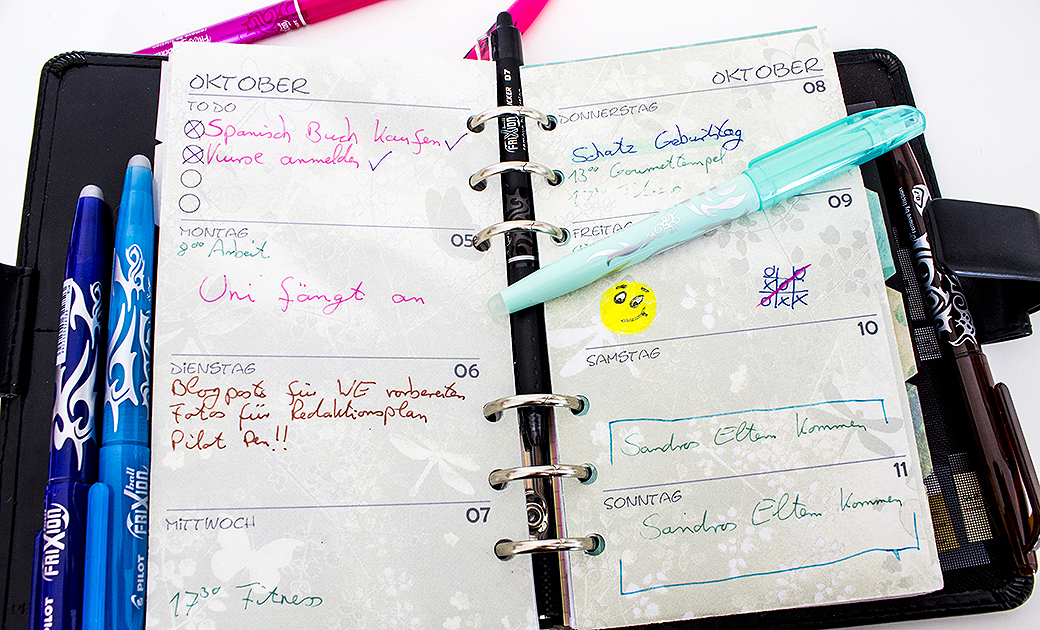 OKTOBER
TO DO
Spanisch Buch kaufen ✓
Kurse anmelden ✓
MONTAG
05
8⁰⁰ Arbeit
Uni fängt an
DIENSTAG
06
Blogposts für WE vorbereiten
Fotos für Redaktionsplan
Pilot Pen!!
MITTWOCH
07
17³⁰ Fitness
OKTOBER
08
DONNERSTAG
Schatz Geburtstag
13⁰⁰ Gourmettempel
Fitness
09
FREITAG
10
SAMSTAG
Sandros Eltern kommen
11
SONNTAG
Sandros Eltern kommen
FRIXION
PILOT
FRIXION ball
PILOT
FRIXION
07